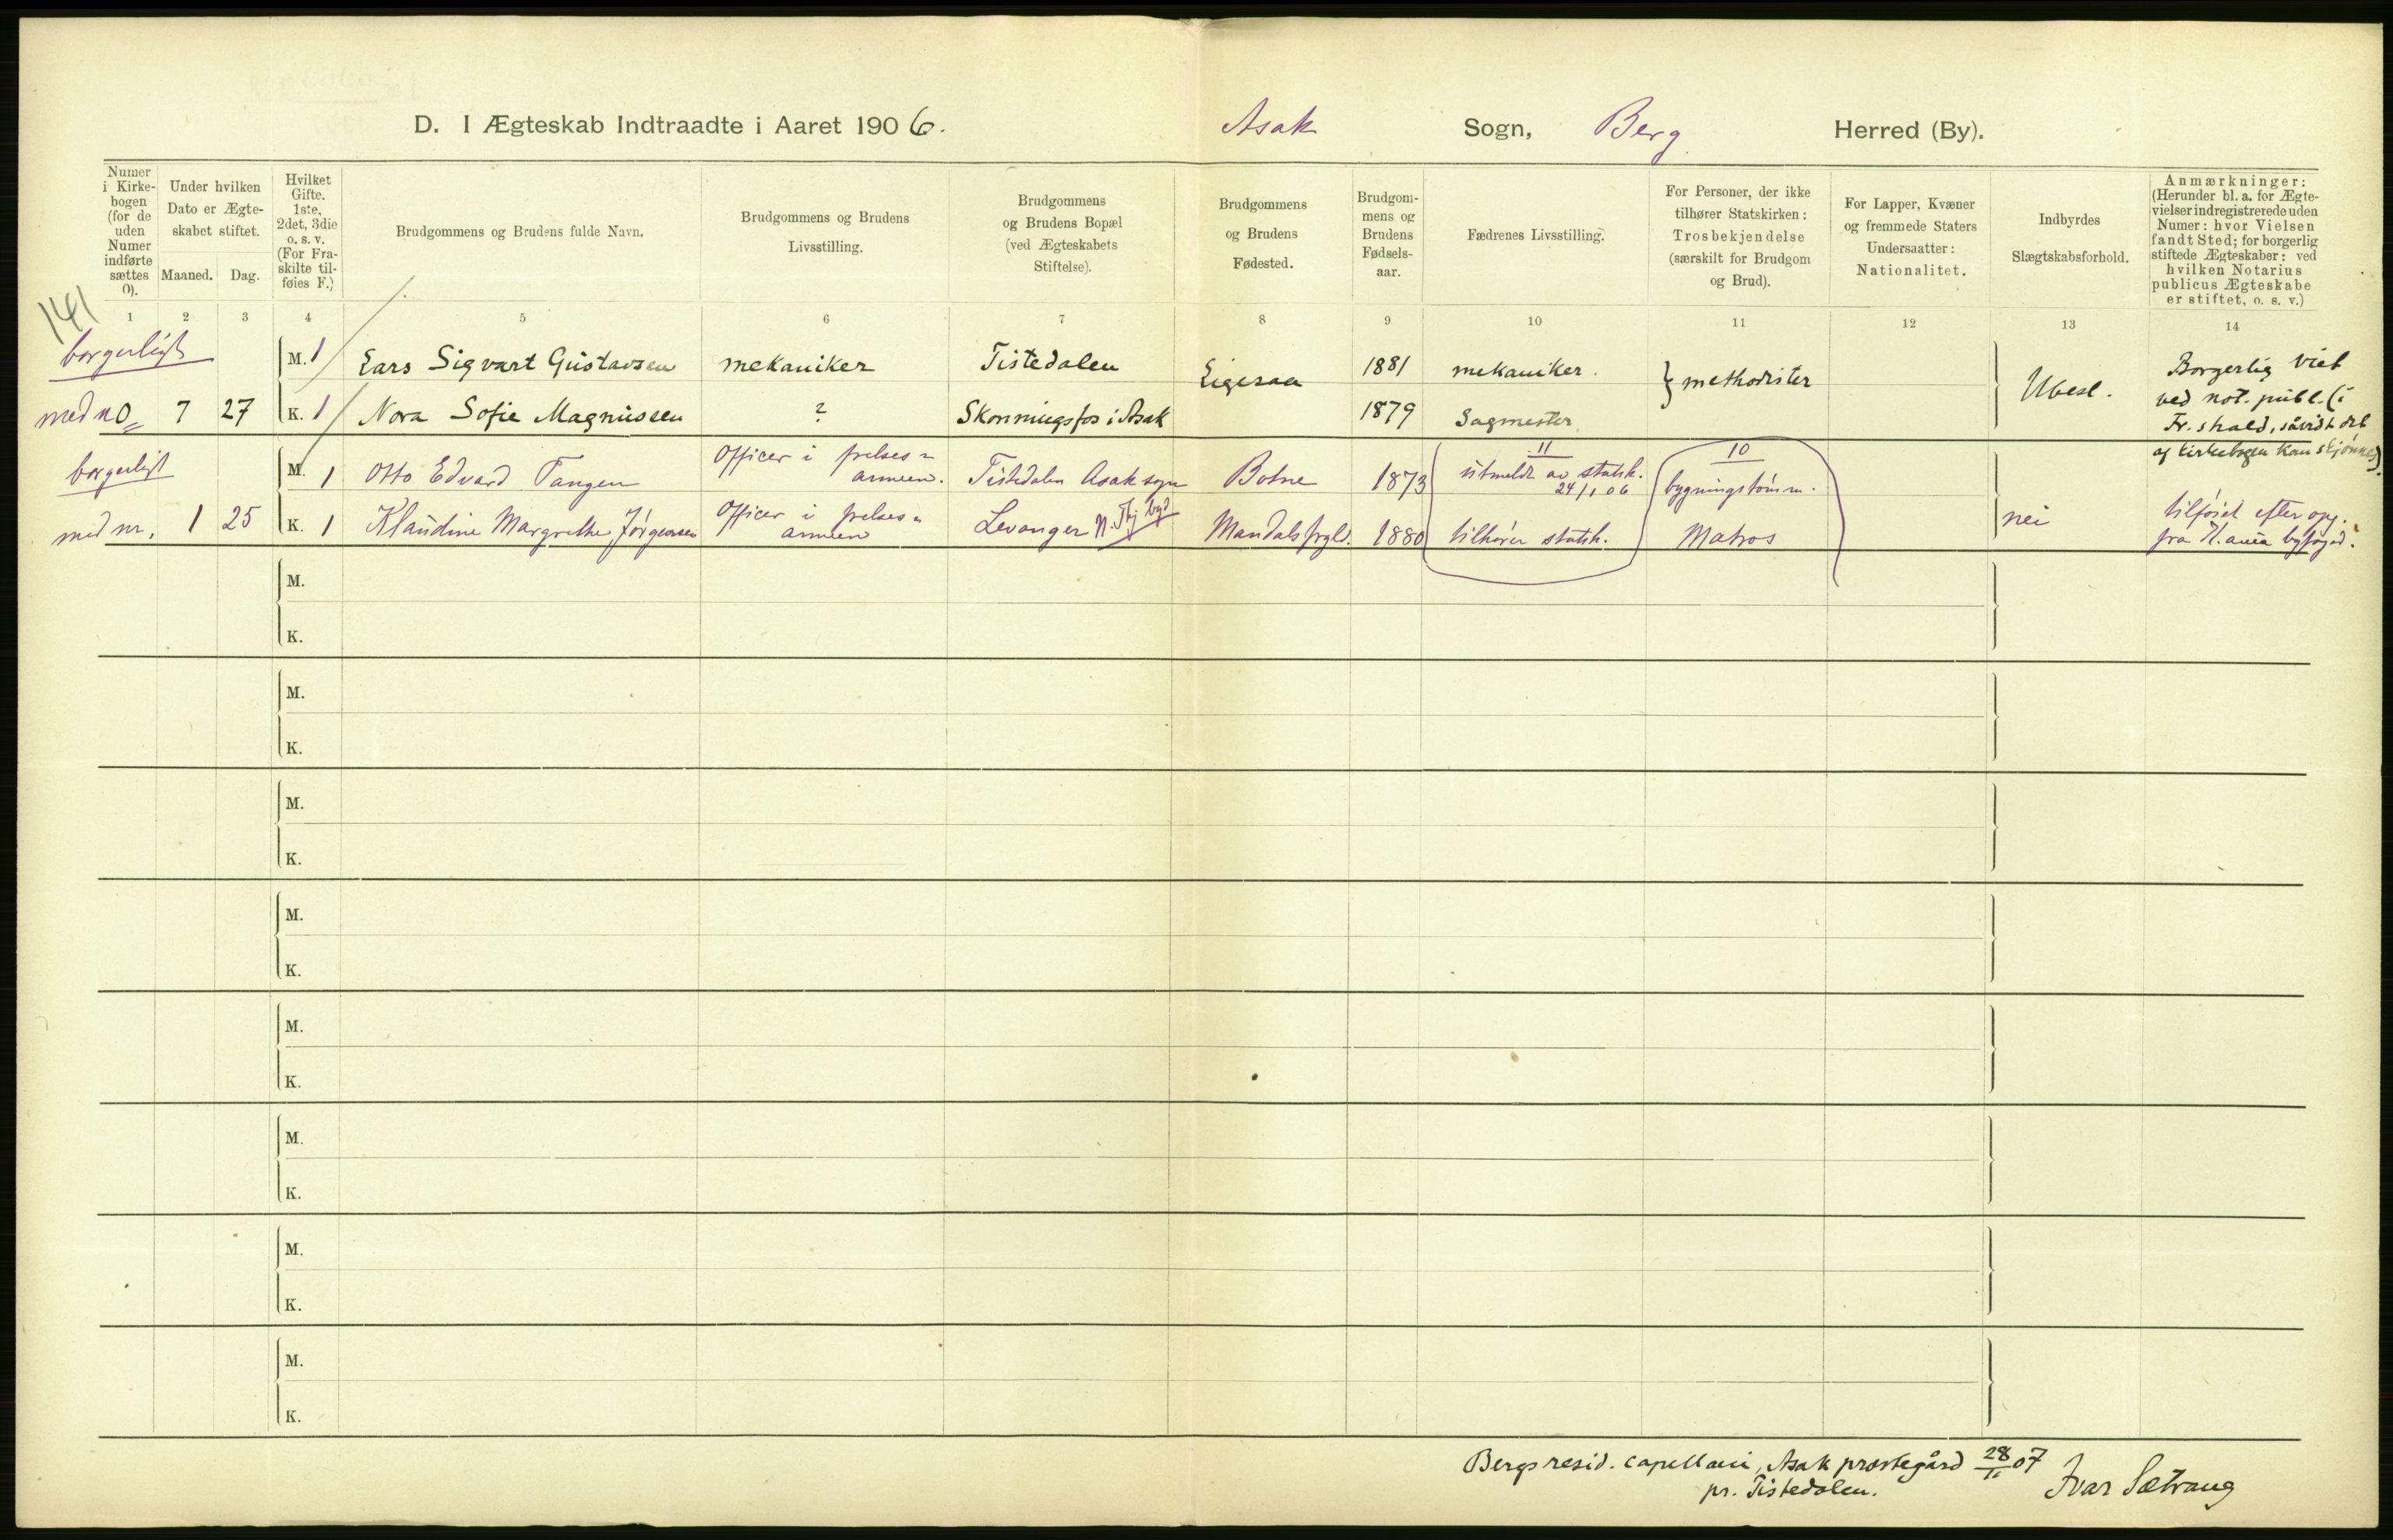 D. I Ægteskab Indtraadte i Aaret 1906. Asak Sogn, Berg Herred (By).
Numer i Kirke-bogen (for de uden Numer indførte sættes 0).
Under hvilken Dato er Ægte-skabet stiftet.
Maaned. Dag.
Hvilket Gifte. 1ste, 2det, 3die o. s. v. (For Fra-skilte til-føies F.)
Brudgommens og Brudens fulde Navn.
Brudgommens og Brudens Livsstilling.
Brudgommens og Brudens Bopæl (ved Ægteskabets Stiftelse).
Brudgommens og Brudens Fødested.
Brudgom-mens og Brudens Fødsels-aar.
Fædrenes Livsstilling.
For Personer, der ikke tilhører Statskirken: Trosbekjendelse (særskilt for Brudgom og Brud).
For Lapper, Kvæner og fremmede Staters Undersaatter: Nationalitet.
Indbyrdes Slægtskabsforhold.
Anmærkninger: (Herunder bl. a. for Ægte-vielser indregistrerede uden Numer: hvor Vielsen fandt Sted; for borgerlig stiftede Ægteskaber: ved hvilken Notarius publicus Ægteskabe er stiftet, o. s. v.)
141
1 2 3 4 5 6 7 8 9 10 11 12 13 14
borgerligt M. 1 Lars Sigvart Gustavsen mekaniker Tistedalen Eigesaa 1881 mekaniker. } methodister Ubesl. Borgerlig viet
med no 7 27 K. 1 Nora Sofie Magnussen ? Skonningsfos i Asak 1879 Sagmester ved not. publ. (i
Fr.shald, såvidt det
af kirkebogen kan skjønnes).
borgerligt M. 1 Otto Edvard Tangen Officer i frelses= armeen. Tistedalen Asak sogn Botne 1873 11 utmeldt av statsk. 24/1 06 10 bygningstømm.
med nr. 1 25 K. 1 Klaudine Margrethe Jørgensen Officer i frelses= armeen Levanger N. Thj byd Mandals prgld. 1880 tilhører statsk. Matros nei tilføiet efter opg.
fra byfoged.
M.
K.
M.
K.
M.
K.
M.
K.
M.
K.
M.
K.
M.
K.
M.
K.
Bergs resid. capellani, Asak prestegård 28/11 07
pr. Tistedalen. Ivar Sætrang